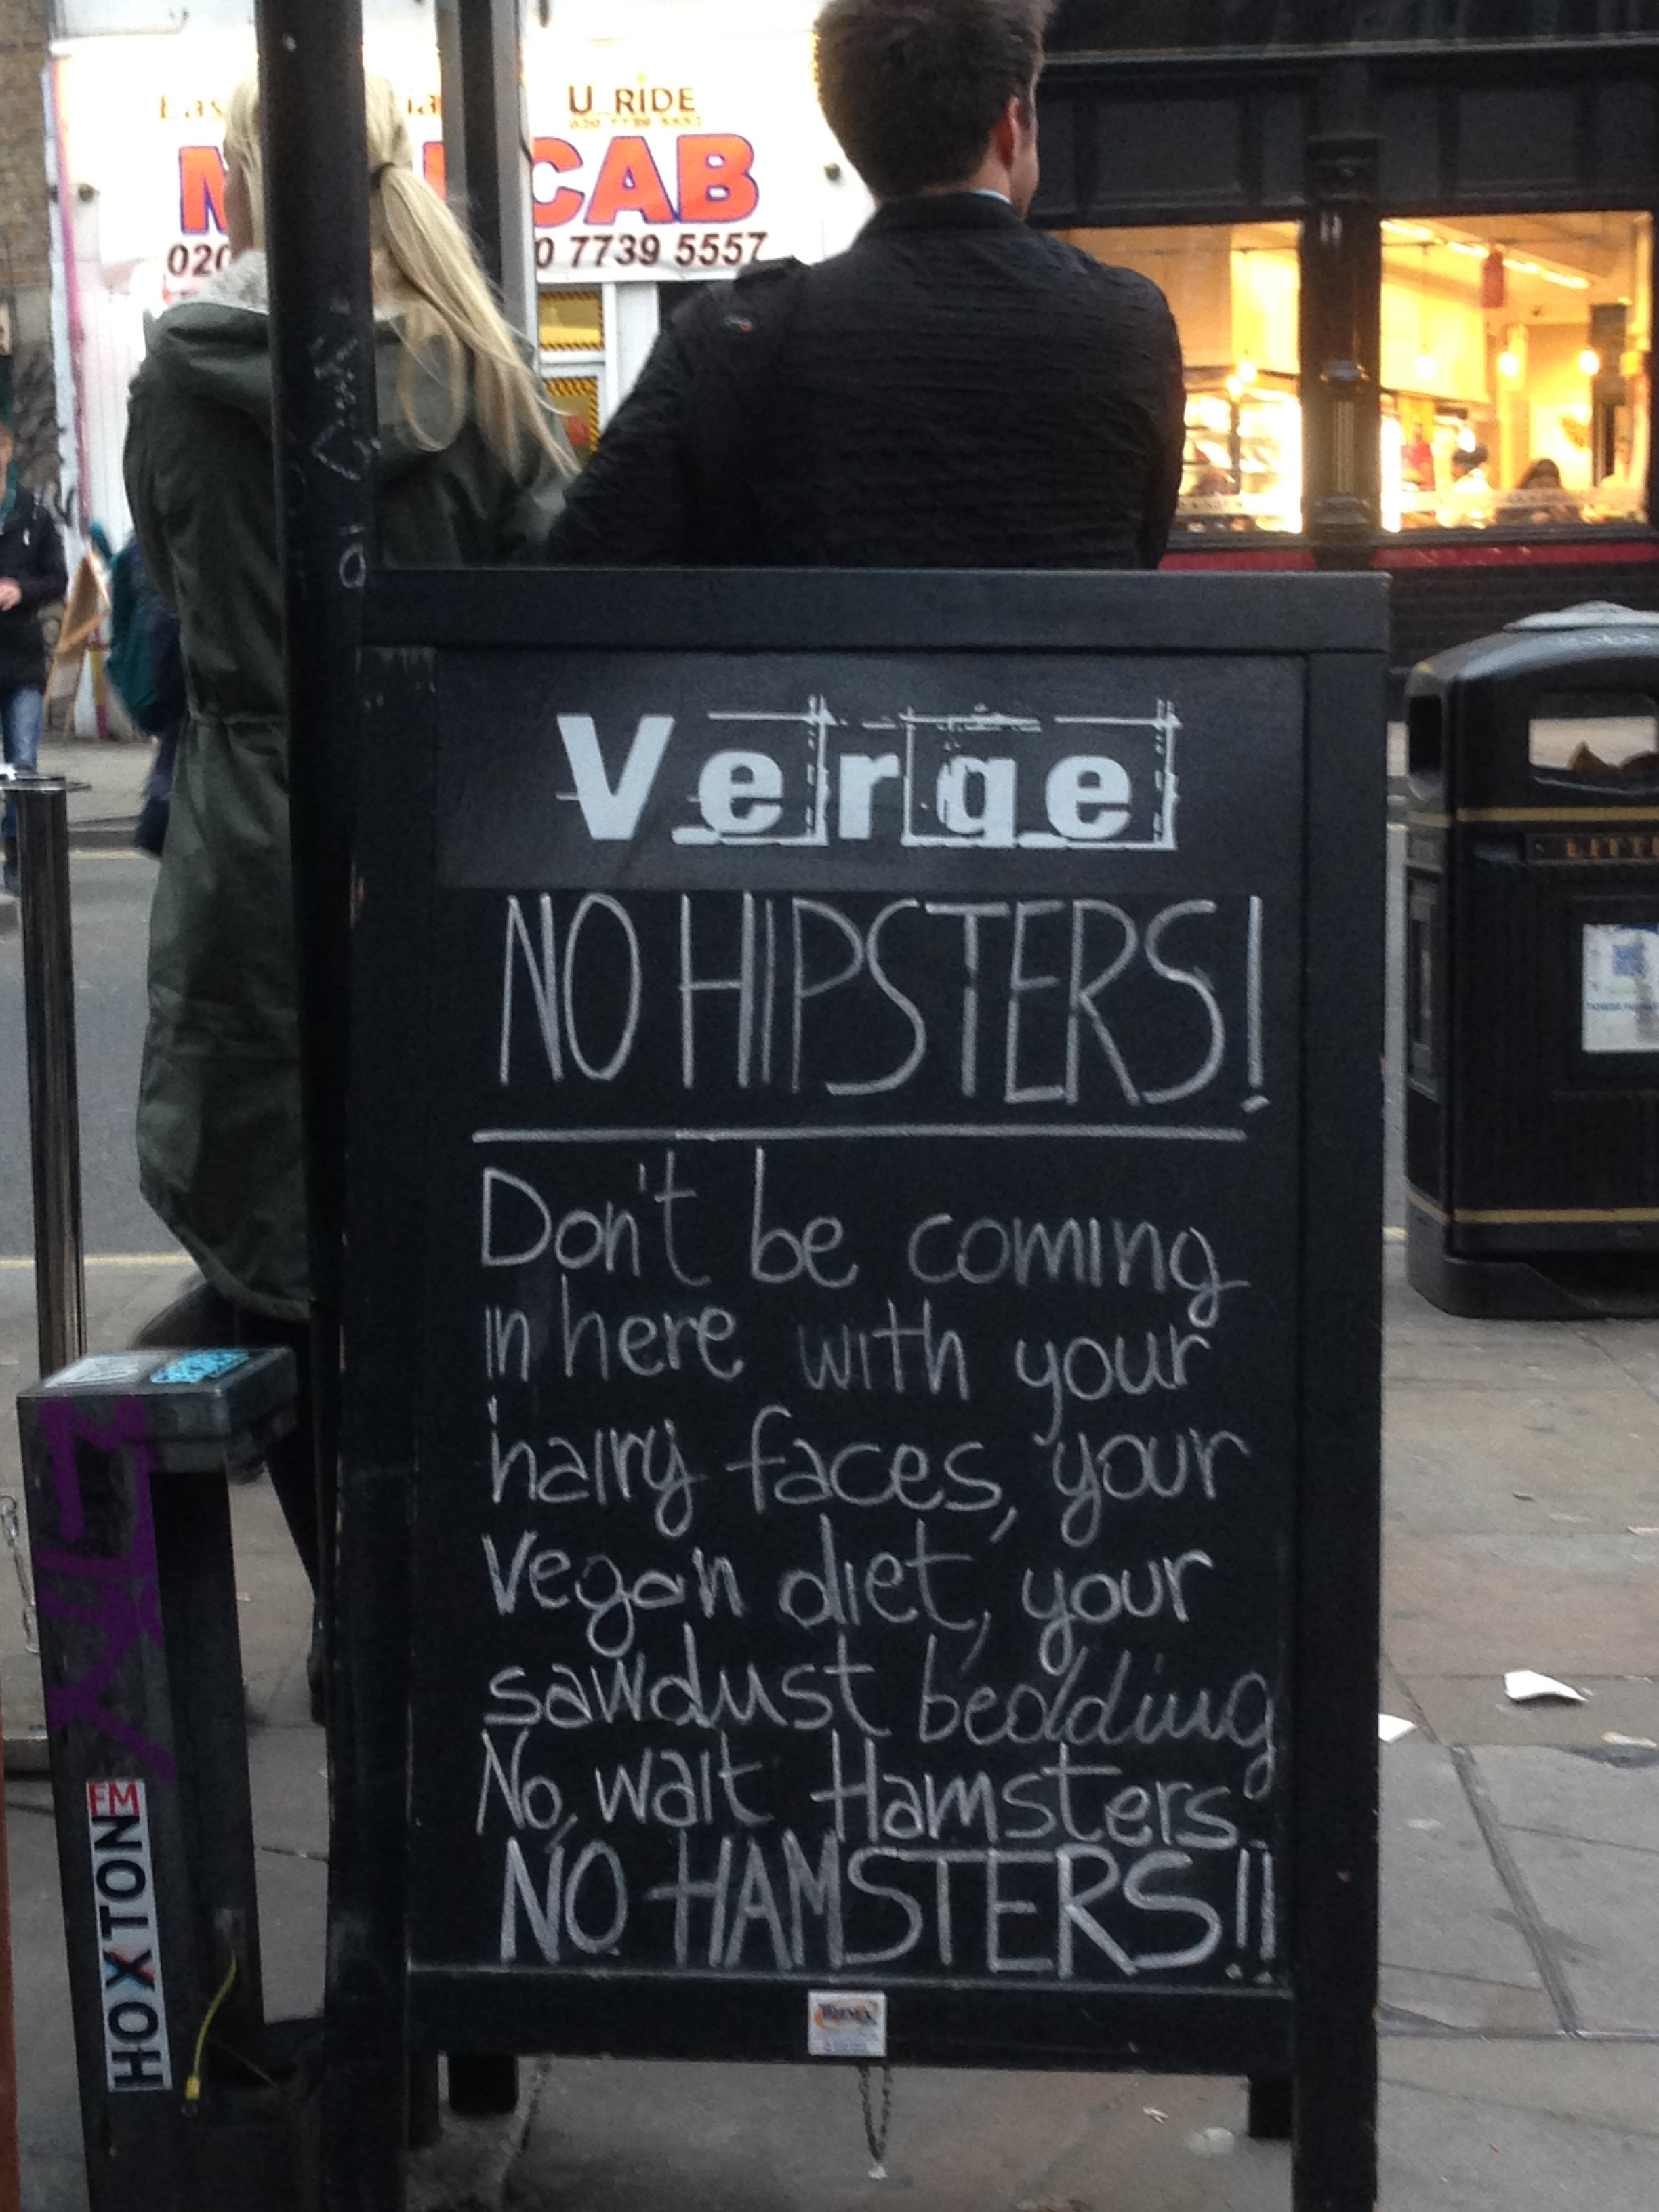 U RIDE
CAB
020
0 7739 5557
Verge
NO HIPSTERS!
Don't be coming
in here with your
hairy faces, your
vegan diet, your
sawdust bedding
No, wait Hamsters.
NO HAMSTERS!!
HOXTON FM